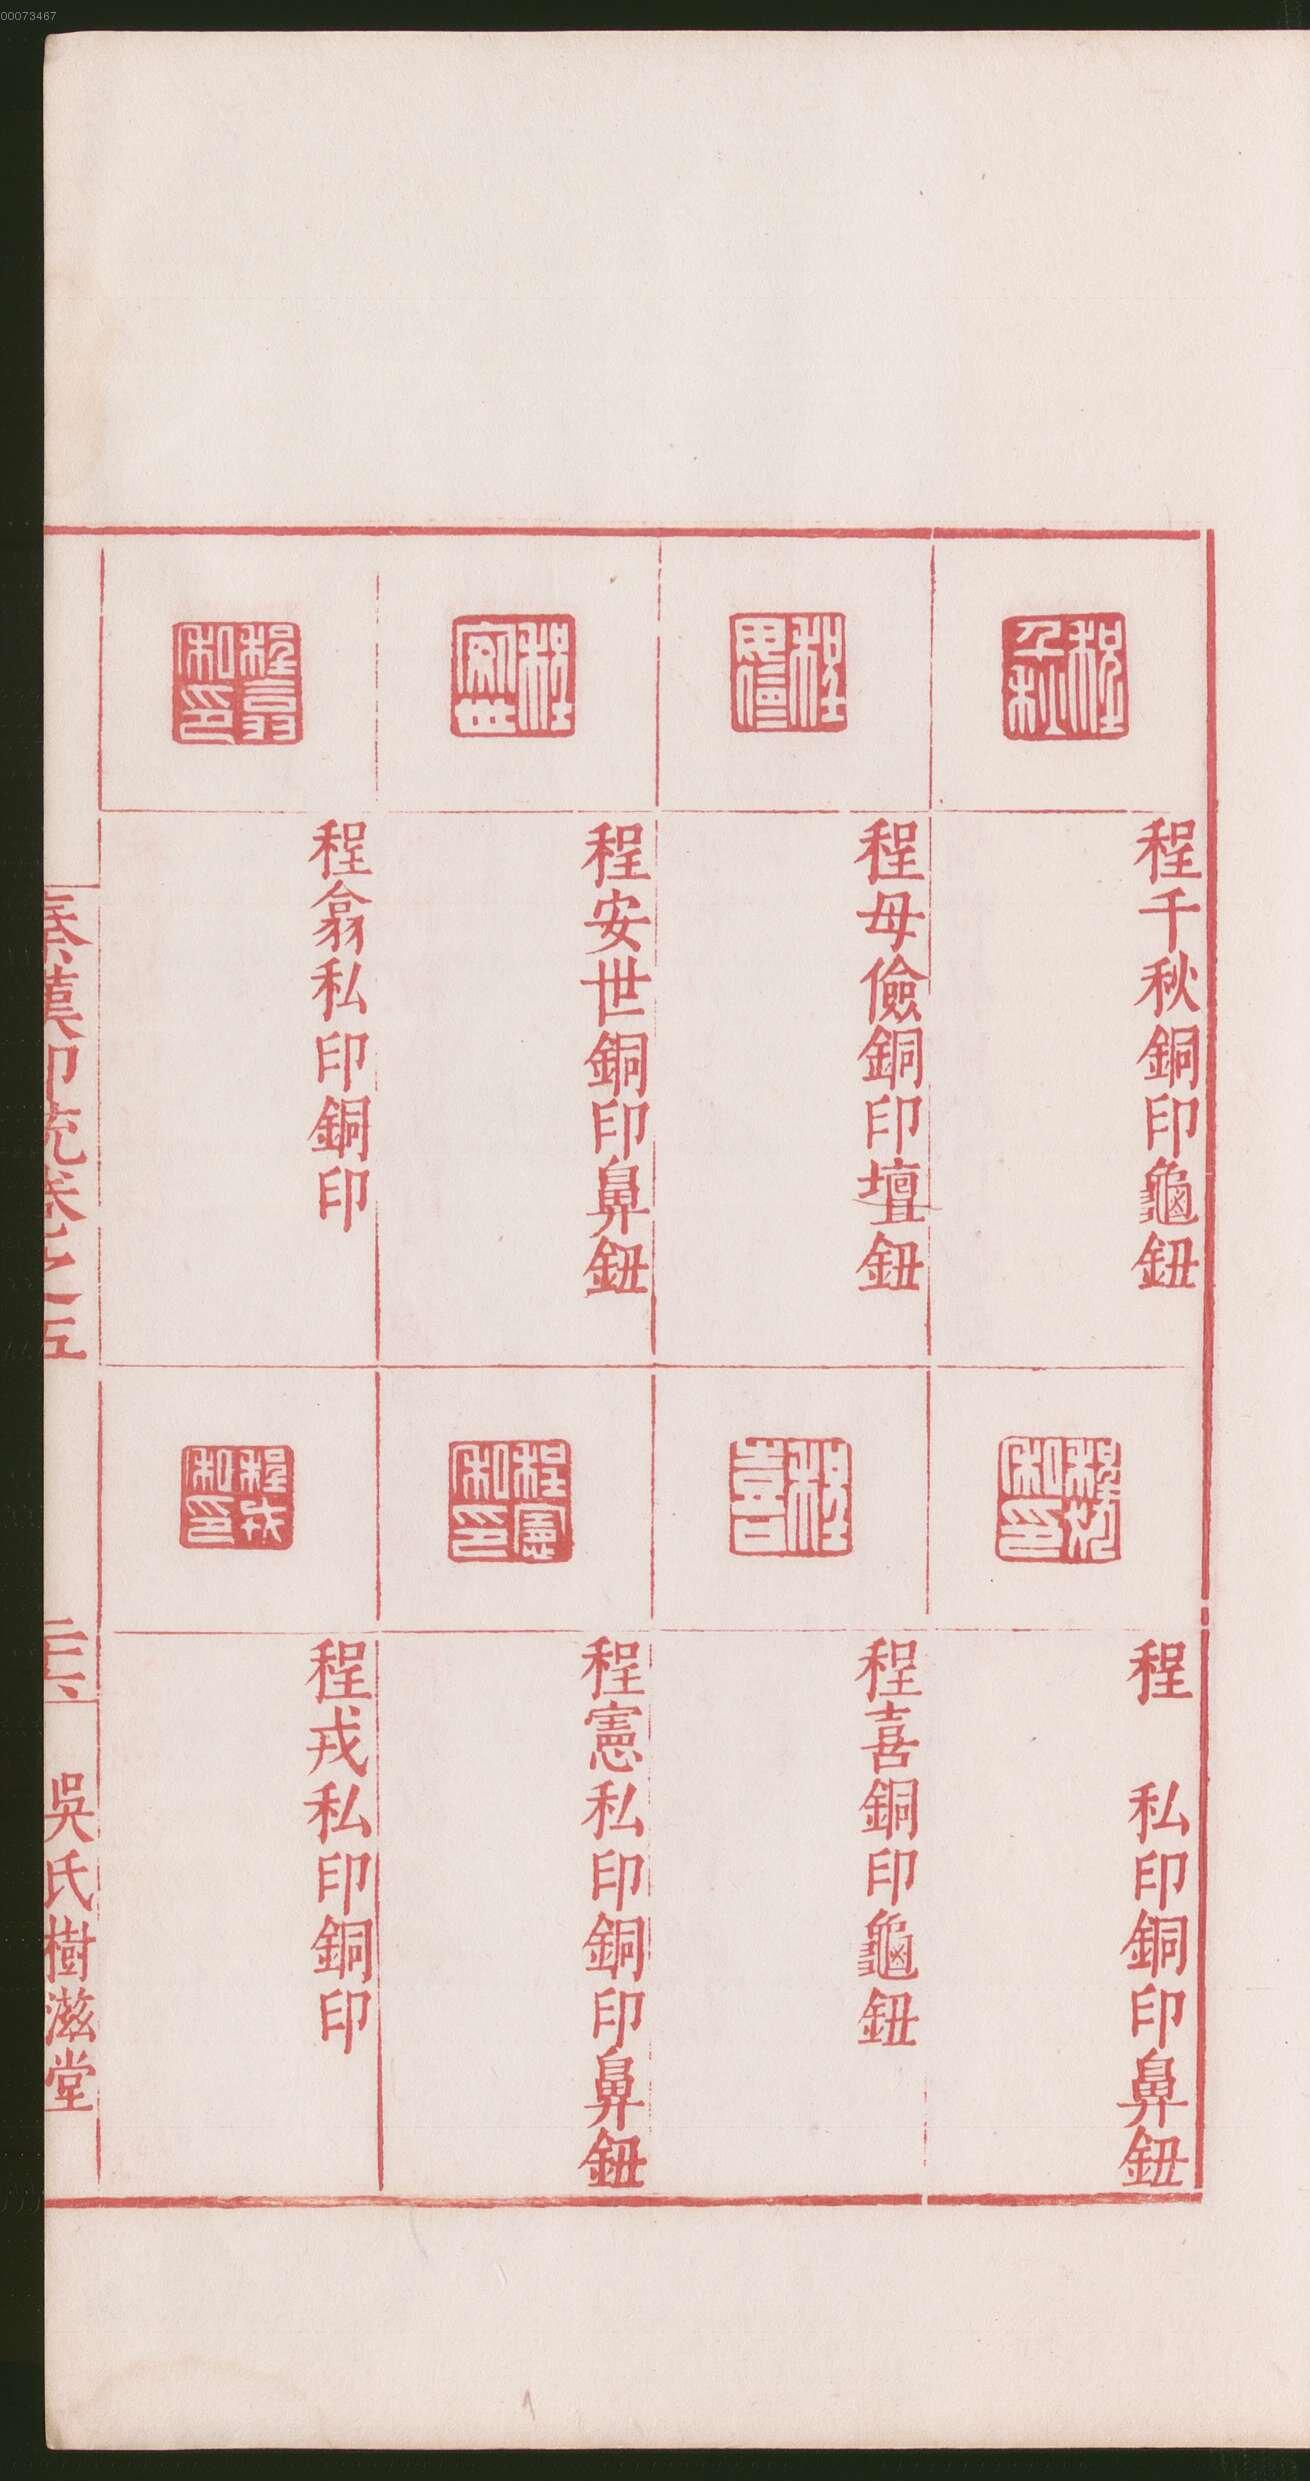 00073467
程千秋銅印龜鈕
程母儉銅印壇鈕
程安世銅印鼻鈕
程翕私印銅印
程　私印銅印鼻鈕
程喜銅印龜鈕
程憲私印銅印鼻鈕
程戎私印銅印
秦漢印統卷之五
吳氏樹滋堂